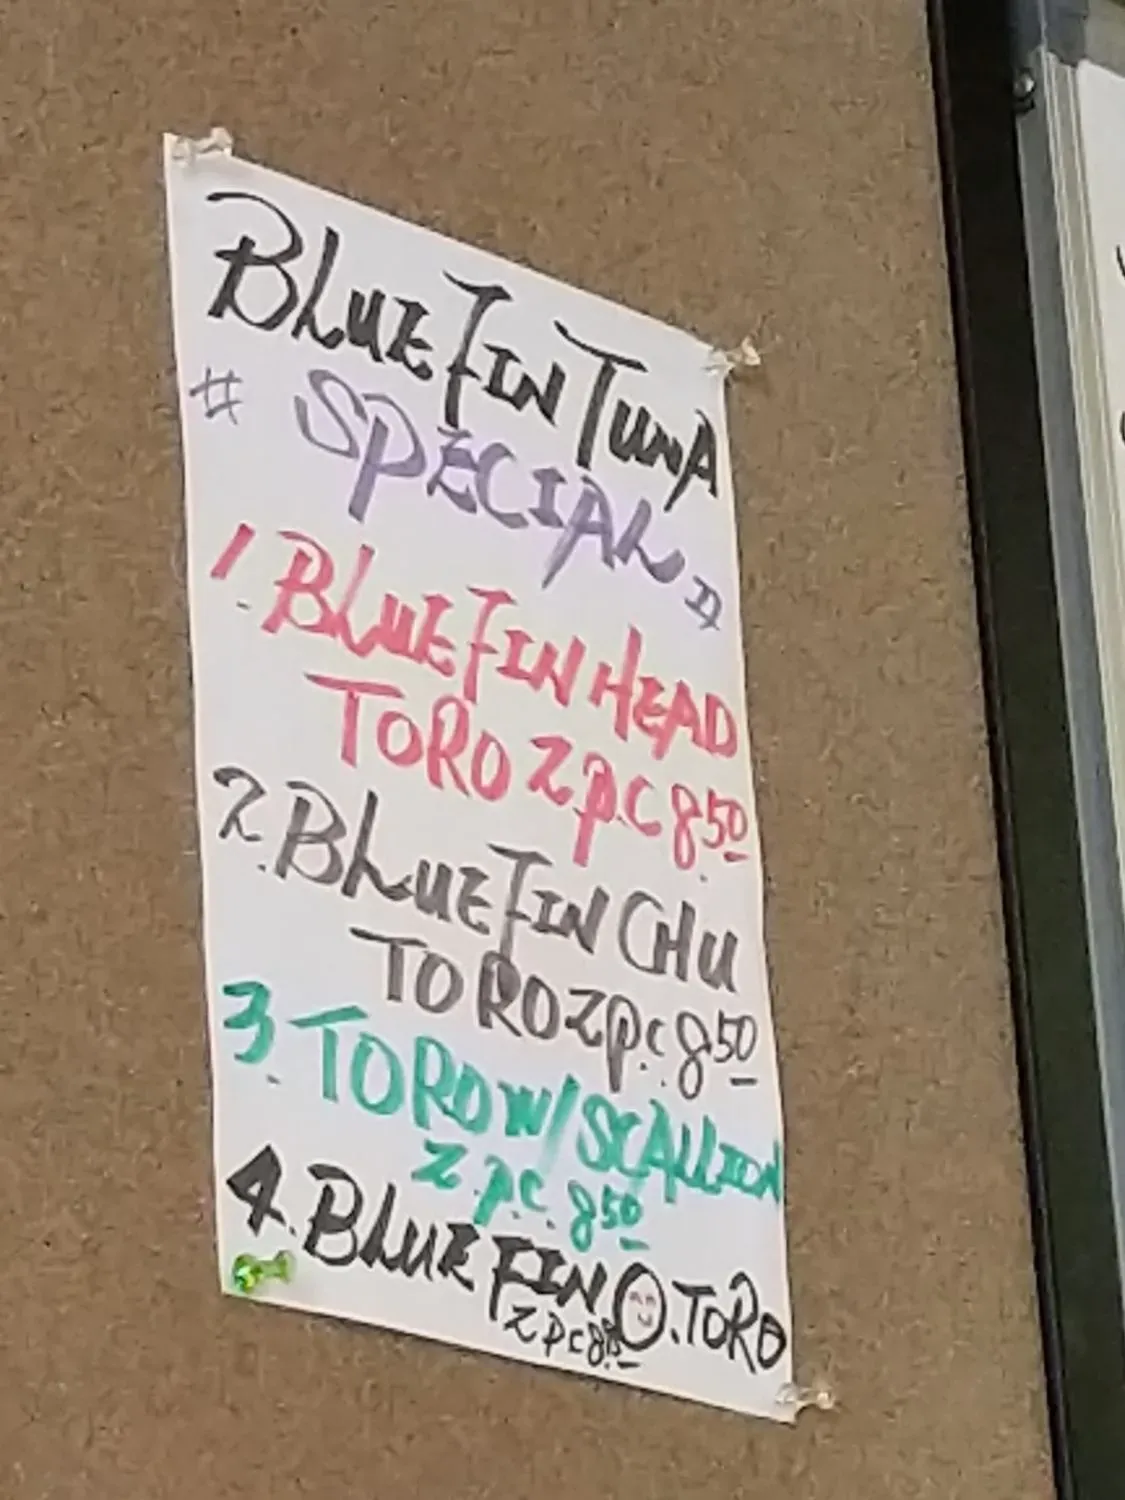 BLUEFIN TUNA
# SPECIAL #
1. BLUEFIN HEAD
TORO 2 p.c 8.50
2. BLUEFIN CHU
TORO 2 p.c. 8.50
3. TORO W/ SCALLION
2 p.c. 8.50
4. BLUEFIN O. TORO
2 pc 8.